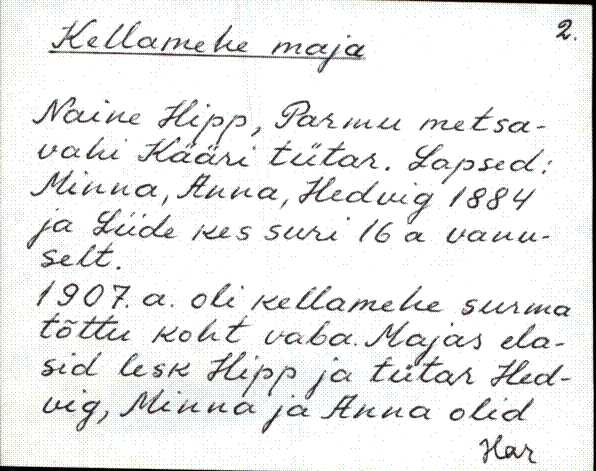 2.
Kellamehe maja
Naine Hipp, Parmu metsa-
vahi Kääri tütar. Lapsed:
Minna, Anna, Hedvig 1884
ja Liide kes suri 16 a vanu-
selt.
1907. a. oli kellamehe surma
tõttu koht vaba. Majas ela-
sid lesk Hipp ja tütar Hed-
vig, Minna ja Anna olid
Har